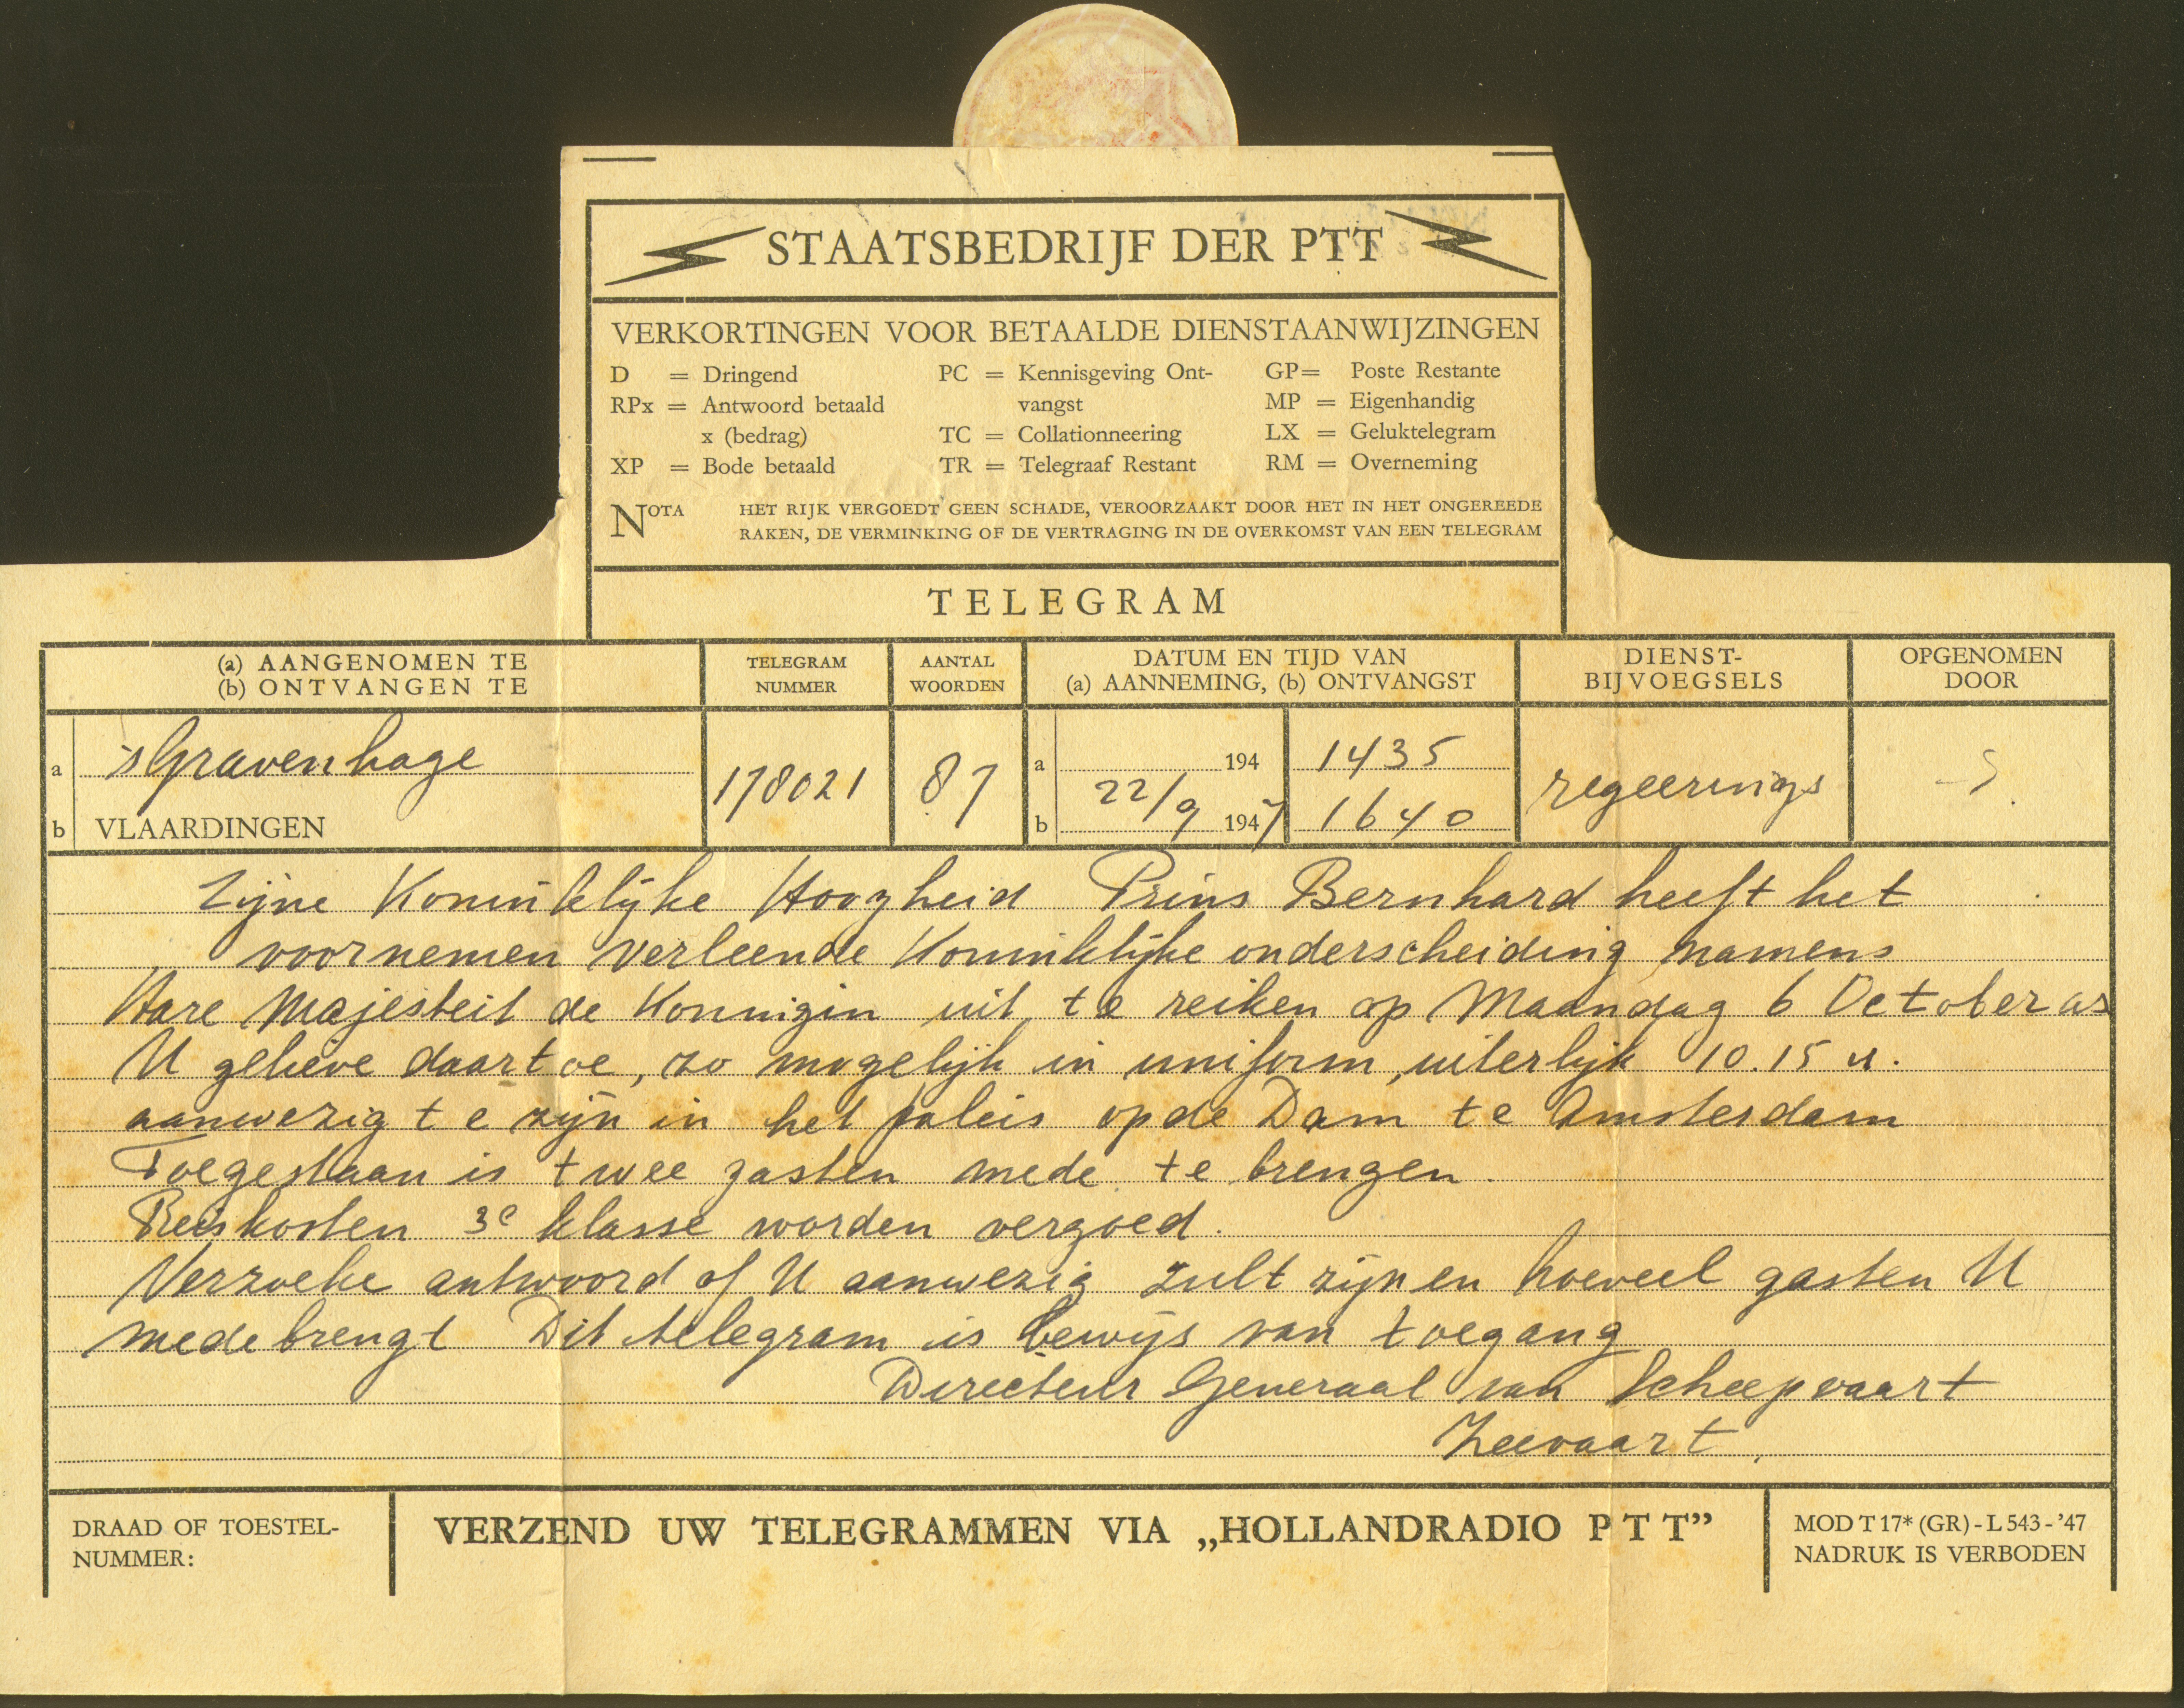 STAATSBEDRIJF DER PTT
VERKORTINGEN VOOR BETAALDE DIENSTAANWIJZINGEN
D = Dringend PC = Kennisgeving Ont- GP = Poste Restante
RPx = Antwoord betaald vangst MP = Eigenhandig
x (bedrag) TC = Collationneering LX = Geluktelegram
XP = Bode betaald TR = Telegraaf Restant RM = Overneming
NOTA HET RIJK VERGOEDT GEEN SCHADE, VEROORZAAKT DOOR HET IN HET ONGEREEDE
RAKEN, DE VERMINKING OF DE VERTRAGING IN DE OVERKOMST VAN EEN TELEGRAM
TELEGRAM
(a) AANGENOMEN TE TELEGRAM AANTAL DATUM EN TIJD VAN DIENST- OPGENOMEN
(b) ONTVANGEN TE NUMMER WOORDEN (a) AANNEMING, (b) ONTVANGST BIJVOEGSELS DOOR
a 'sGravenhage 178021 87 a 194 1435 regeerings
b VLAARDINGEN b 22/9 1947 1640
Zijne Koninklijke Hoogheid Prins Bernhard heeft het
voornemen verleende Koninklijke onderscheiding namens
Hare Majesteit de Koningin uit te reiken op Maandag 6 October as
U gelieve daartoe, zo mogelijk in uniform, uiterlijk 10.15 u.
aanwezig te zijn in het paleis op de Dam te Amsterdam
Toegestaan is twee gasten mede te brengen.
Reiskosten 3e klasse worden vergoed.
Verzoeke antwoord of U aanwezig zult zijn en hoeveel gasten U
medebrengt Dit telegram is bewijs van toegang
Directeur Generaal van Scheepvaart
Zeevaart
DRAAD OF TOESTEL-
NUMMER:
VERZEND UW TELEGRAMMEN VIA „HOLLANDRADIO PTT”
MOD T 17* (GR) - L 543 - '47
NADRUK IS VERBODEN